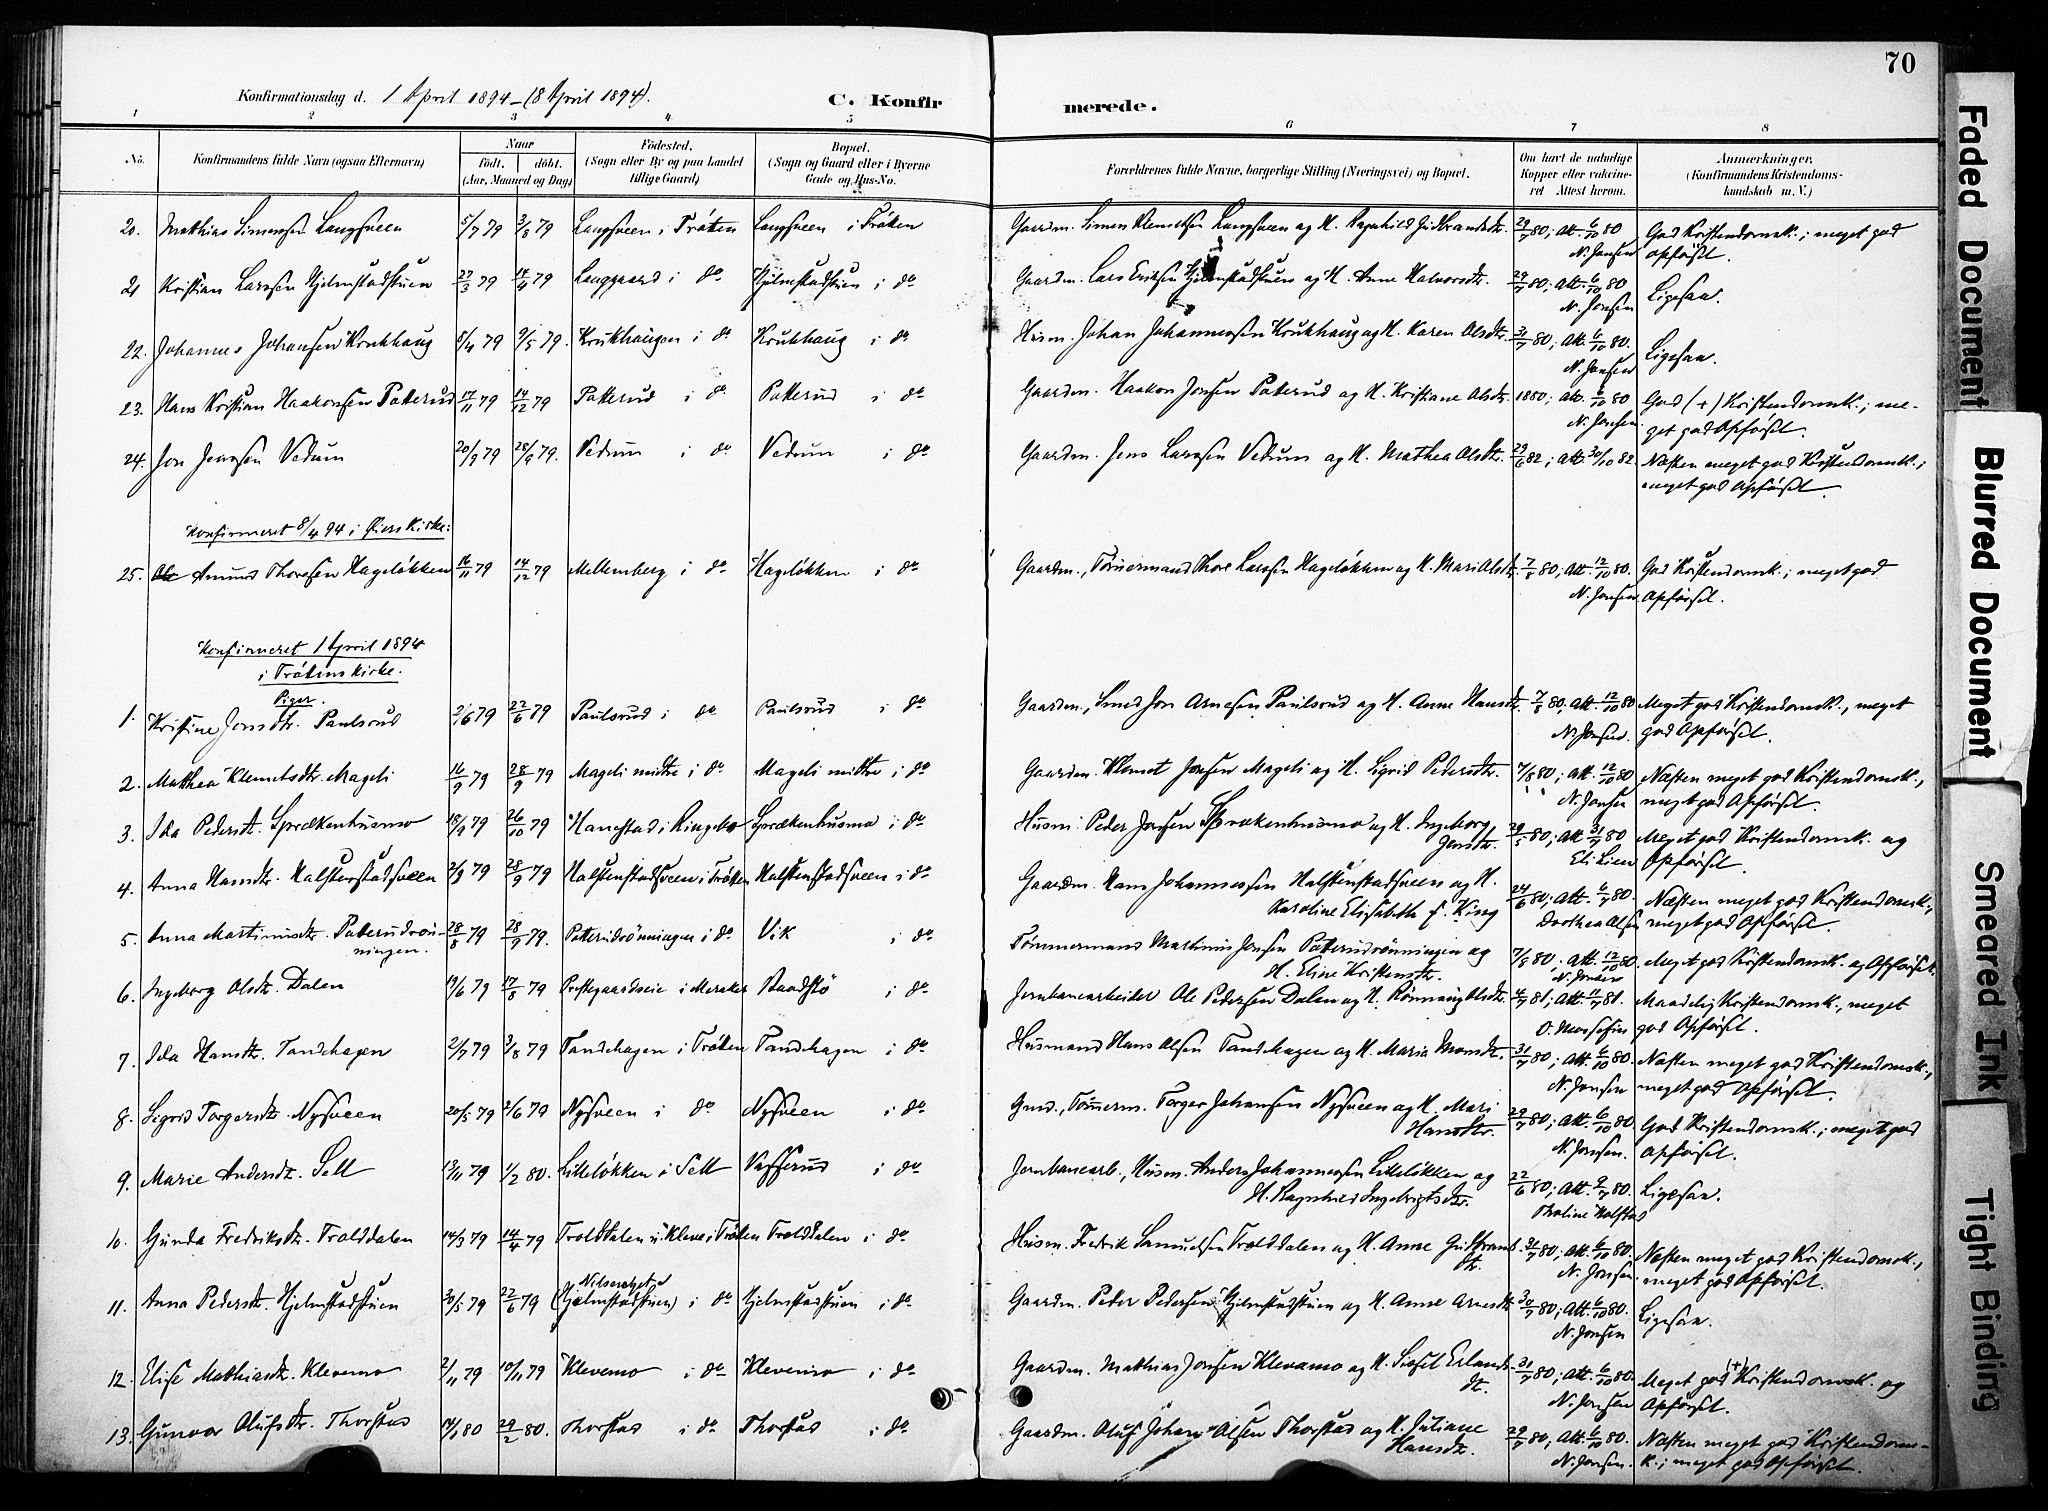 70
Konfirmationsdag d. 1 April 1894 – (8 April 1894).
C. Konfirmerede.
1 2 3 4 5 6 7 8
No.
Konfirmandens fulde Navn (ogsaa Efternavn)
Naar
født. døbt.
(Aar, Maaned og Dag)
Fødested.
(Sogn eller By og paa Landet
tillige Gaard)
Bopæl.
(Sogn og Gaard eller i Byerne
Gade og Hus-No.
Forældrenes fulde Navne, borgerlige Stilling (Næringsvei) og Bopæl.
Om havt de naturlige
Kopper eller vakcine-
ret Attest herom.
Anmærkninger,
(Konfirmandens Kristendoms-
kundskab m. V.)
20. Mathias Simensen Langsveen 5/7 79 3/8 79 Langsveen i Trøten Langsveen i Trøten Gaardm. Simen Klemetsen Langsveen og H. Ragnhild Gudbrandsdtr. 29/7 80; Att. 6/10 80 N. Jonsen God Kristendomsk.; meget god
Opførsel.
21 Kristian Larssen Hjelmstadstuen 27/3 79 14/4 79 Langgaard i do Hjelmstadstuen i do Gaardm. Lars Eriksen Hjelmstadstuen og H. Anne Halvorsdtr. 29/7 80; Att. 6/10 80 N. Jonsen Ligesaa.
22. Johannes Johansen Krukhaug 8/4 79 9/5 79. Krukhaugen i do Krukhaug i do Husm. Johan Johannessen Krukhaug og H. Karen Olsdtr. 31/7 80; Att. 6/10 80. N. Jonsen Ligesaa.
23. Hans Kristian Haakonsen Patterud 17/11 79 14/12 79 Patterud i do Patterud i do Gaardm. Haakon Jonsen Patterud og H. Kristiane Olsdtr. 1880; Att. 6/10 80 N. Jonsen. God (+) Kristendomsk.; me-
get god Opførsel.
24. Jon Jenssen Vedum 20/9 79 28/9 79. Vedum i do Vedum i do Gaardm. Jens Larssen Vedum og H. Mathea Olsdtr. 29/6 82; Att. 30/10 82. Næsten meget god Kristendomsk.;
meget god Opførsel.
Konfirmeret 8/4 94 i Øiers Kirke:
25. Amund Thoresen Hageløkken 16/11 79 14/12 79 Mellemberg i do Hageløkken i do Gaardm., Tømmermand Thore Larssen Hageløkken og H. Mari Olsdtr. 7/8 80; Att. 12/10 80. N. Jonsen God Kristendomsk.; meget god
Opførsel.
Konfirmeret 1 April 1894
i Trøtens Kirke.
Piger.
1. Kristine Jonsdtr. Paulsrud 2/6 79 22/6 79 Paulsrud i do Paulsrud i do Gaardm., Smed Jon Arnesen Paulsrud og H. Anne Hansdtr. 7/8 80; Att. 12/10 80 N. Jonsen. Meget god Kristendomsk., meget
god Opførsel.
2. Mathea Klemetsdtr. Mageli 16/9 79 28/9 79 Mageli midtre i do Mageli mittre i do Gaardm. Klemet Jonsen Mageli og H. Sigrid Pedersdtr. 7/8 80; Att. 12/10 80 N. Jonsen Næsten meget god Kristendomsk.,
meget god Opførsel.
3. Ida Pedersdtr. Sprækenhusmo 18/9 79 26/10 79 Hanestad i Ringebo Sprækenhusmo i do Husm. Peder Jonsen Sprækenhusmo og H. Ingeborg
Jensdtr. Att. 31/7 80 Eli Lien Meget god Kristendomsk. og
Opførsel.
4. Anna Hansdtr. Halstenstadsveen 2/9 79 28/9 79 Halstenstadsveen i Trøten Halstenstadsveen i do Gaardm. Hans Johannessen Halstenstadsveen og H.
Karoline Elisabeth f. King 24/6 80; Att. 6/7 80. Dorthea Olsen Næsten meget god Kristendomsk.,
meget god Opførsel.
5. Anna Martinusdtr. Patterudrøn-
ningen. 28/8 79 28/9 79. Patterudrönningen i do Vik i do Tømmermand Martinus Jonsen Patterudrönningen og
H. Eline Kristensdtr. 7/8 80; Att. 12/10 80. N. Jonsen Meget god Kristendomsk. og Opførsel.
6. Ingeborg Olsdtr. Dalen 19/6 79 17/8 79 Prestgaardseie i Meraker Baadstø i do Jernbanearbeider Ole Pedersen Dalen og H. Rønnaug Olsdtr. 4/7 81; Att. 11/7 81. Maadelig Kristendomsk., meget
god Opførsel.
7. Ida Hansdtr. Tandehagen 2/7 79 3/8 79 Tandehagen i Trøten Tandehagen i do Husmand Hans Olsen Tandehagen og H. Maria Monsdtr. 31/7 80; Att. 6/10 80. N. Jonsen Næsten meget god Kristendomsk.,
meget god Opførsel.
8. Sigrid Torgersdtr. Nysveen 20/5 79 2/6 79 Nysveen i do Nysveen i do Gmd., Tømmerm. Torger Johansen Nysveen og H. Mari
Hansdtr. 29/7 80; Att. 6/10 80. N. Jonsen. God Kristendomsk.; meget god
Opførsel.
9. Marie Andersdtr. Sell 19/11 79 1/2 80. Lilleløkken i Sell Vasserud i do Jernbanearb., Husm. Anders Johannessen Lilleløkken og
H. Ragnhild Ingebrigtsdtr. 22/6 80; Att. 9/7 80. Tholine Kolstad Ligesaa.
10. Gunda Fredriksdtr. Trolddalen 14/3 79 14/4 79 Trolddalen u. Kleve i Trøten Trolddalen i do Husm. Fredrik Samuelsen Trolddalen og H. Anne Gudbrands-
dtr. 31/7 80; Att. 6/10 80. N. Jonsen. Næsten meget god Kristendomsk.,
meget god Opførsel.
11. Anna Pedersdtr. Hjelmstadstuen 30/5 79 22/6 79 (Hjelmstadstuen) i do Hjelmstadstuen i do Gaardm. Peder Pedersen Hjelmstadstuen og H. Anne Arnesdtr. 30/7 80; Att. 6/10 80. N. Jonsen Ligesaa.
12. Elise Mathiasdtr. Klevemo 2/11 79 10/11 79 Klevemo i do Klevemo i do Gaardm. Mathias Jonsen Klevamo og H. Sissel Erlands-
dtr. 31/7 80; Att. 6/10 80. N. Jonsen Meget god (+) Kristendomsk. og
Opførsel.
13. Gunvor Olufsdtr. Thorstad 14/1 80 29/2 80. Thorstad i do Thorstad i do Gaardm. Oluf Johan Olsen Thorstad og H. Juliane
Hansdtr. 29/7 80; Att. 6/10 80. N. Jonsen. Næsten meget god Kristendoms-
k.; meget god Opførsel.
Faded Document
Blurred Document
Smeared Ink
Tight Binding